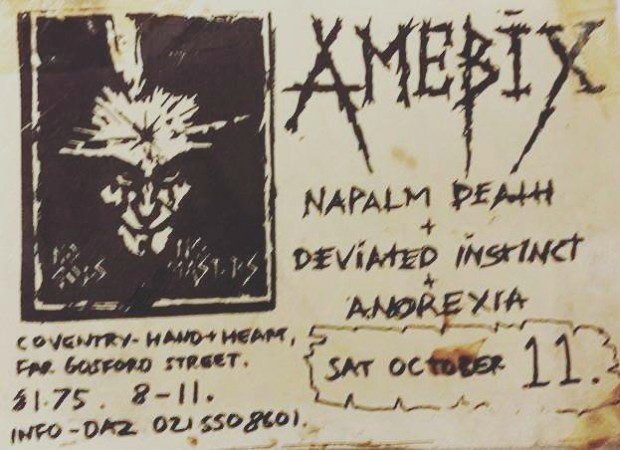 AMEBIX
NAPALM DEATH
+
DEVIATED INSTINCT
+
ANOREXIA
SAT OCTOBER 11.
NO GODS
NO MASTERS
COVENTRY-HAND+HEART,
FAR GOSFORD STREET.
£1.75. 8-11.
INFO-DAZ 021 550 8601.